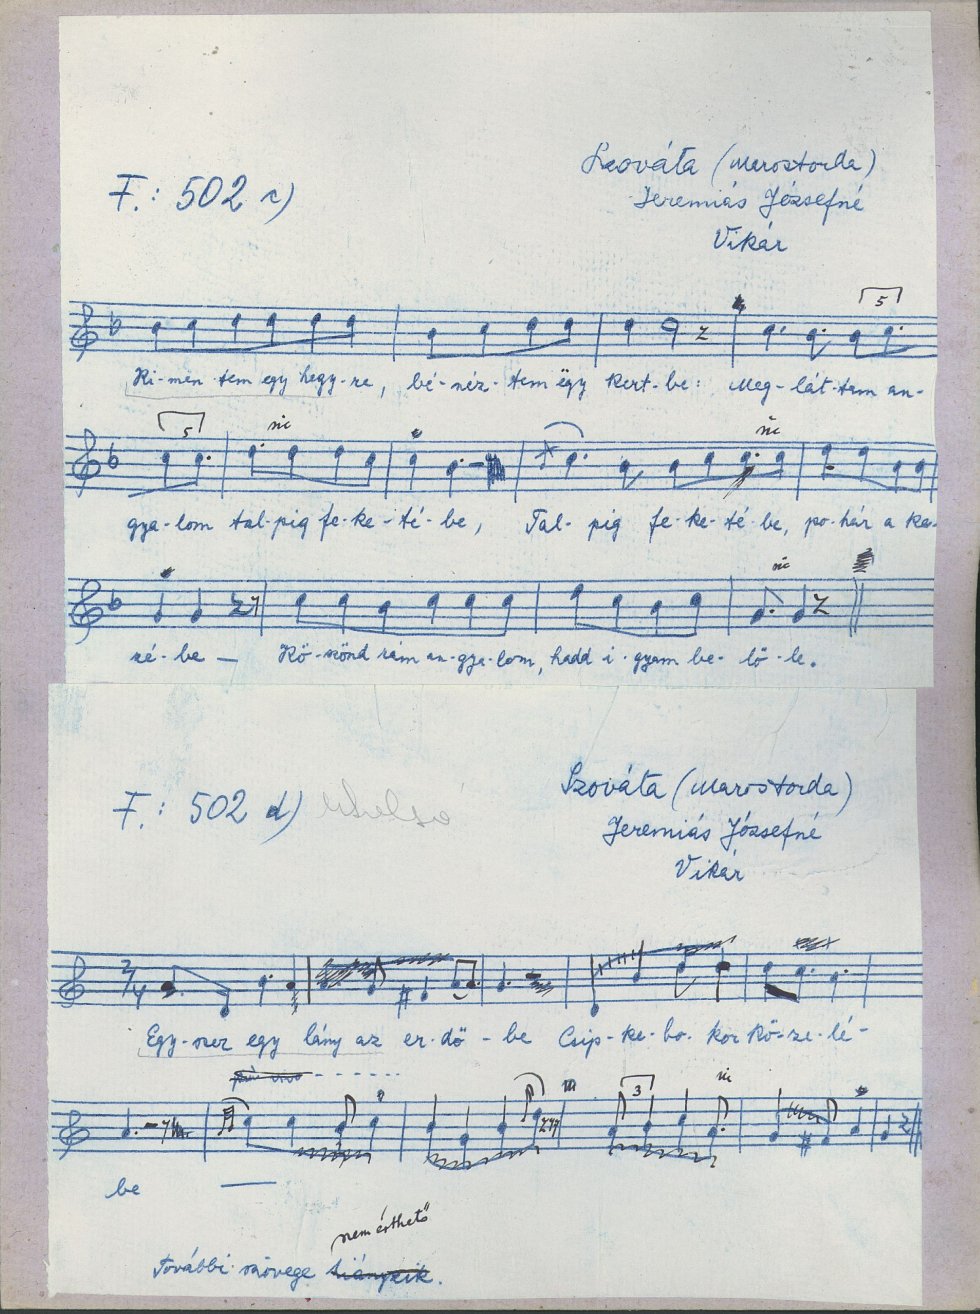 F.: 502 c)
Szováta (Marostorda)
Jeremiás Józsefné
Vikár
5
Ki-men-tem egy hegy-re, bé-néz-tem ëgy kert-be: Meg-lát-tam an-
5
gya-lom tal-pig fe-ke-té-be, Tal-pig fe-ke-té-be, po-hár a ke-
zé-be — Kö-szönd rám an-gya-lom, hadd i-gyam be-lő-le.
F.: 502 d)
Szováta (Marostorda)
Jeremiás Józsefné
Vikár
2/4
Egy-szer egy lány az er-dő-be Csip-ke-bo-kor kö-ze-lé-
3
be —
nem érthető
További szövege hiányzik.